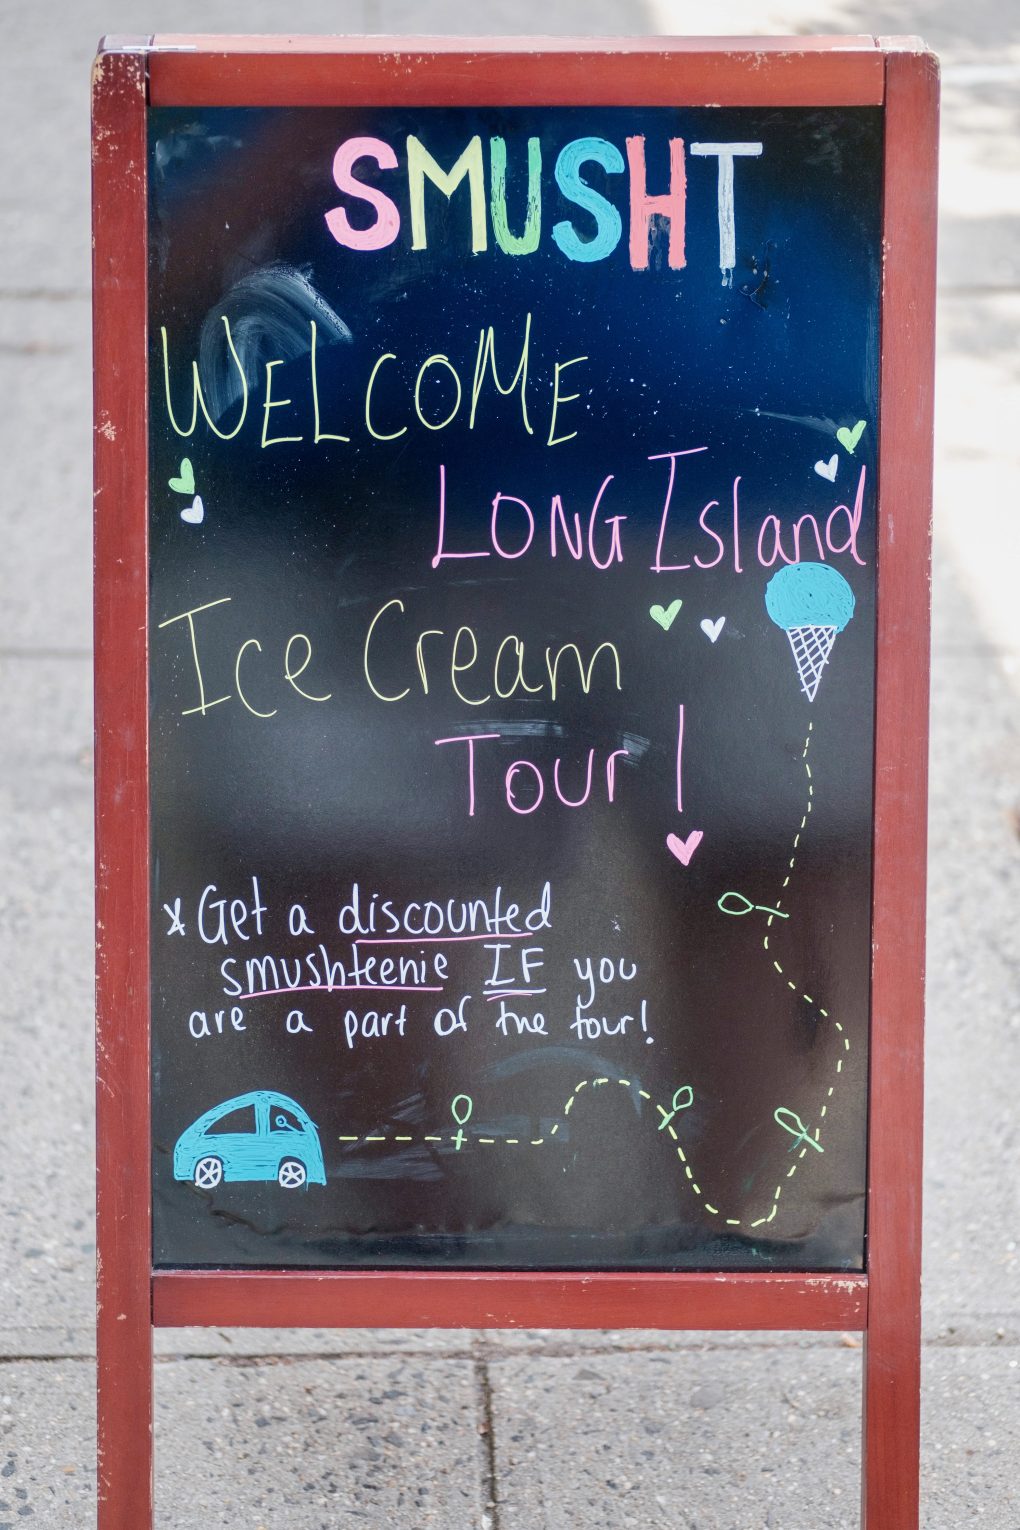 SMUSHT
WELCOME
LONG Island
Ice Cream
Tour!
* Get a discounted
smushteenie IF you
are a part of the tour!